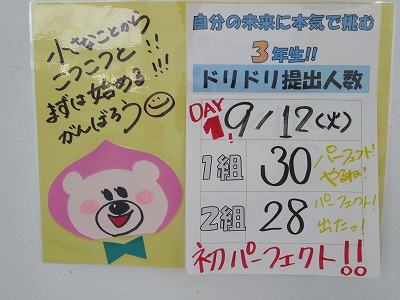 小なことから
こつこつと!!
まずは始める!!!
がんばろう
自分の未来に本気で挑む
3年生!!
ドリドリ提出人数
DAY
1!
9/12(火)
1組
30
パーフェクト!
やるね!
2組
28
パーフェクト!
出たっ!
初パーフェクト!!